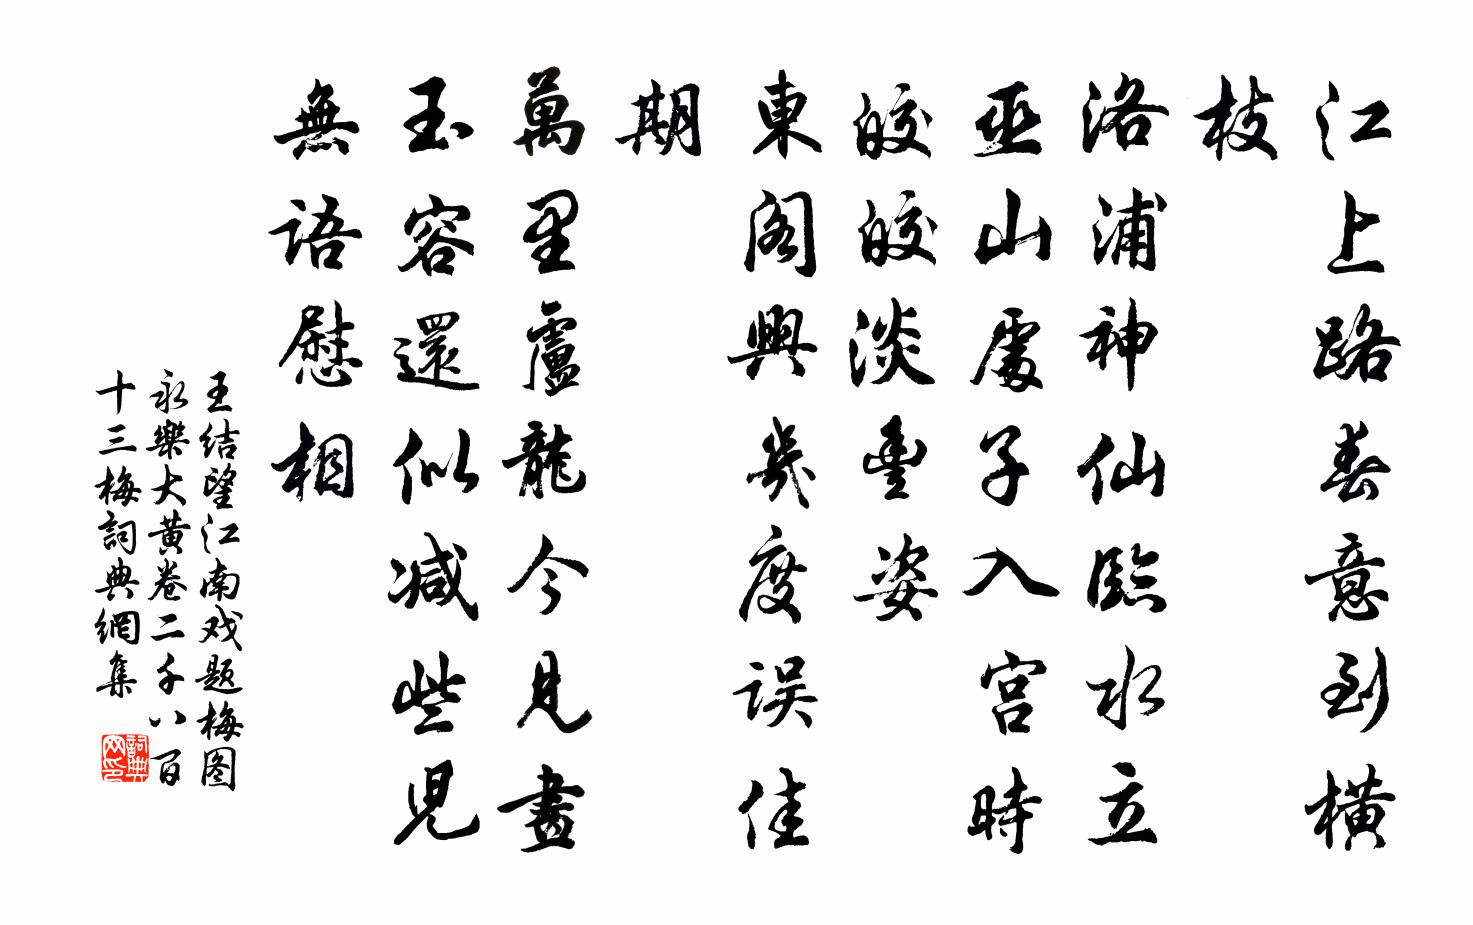 江上路春意到橫
枝
洛浦神仙臨水立
巫山處子入宮時
皎皎淡豐姿
東阁興幾度误佳
期
萬里盧龍今見畫
玉容還似减些兒
無语慰相
王结望江南戏题梅图
永樂大黄卷二千八百
十三梅詞典網集
詞典
网印